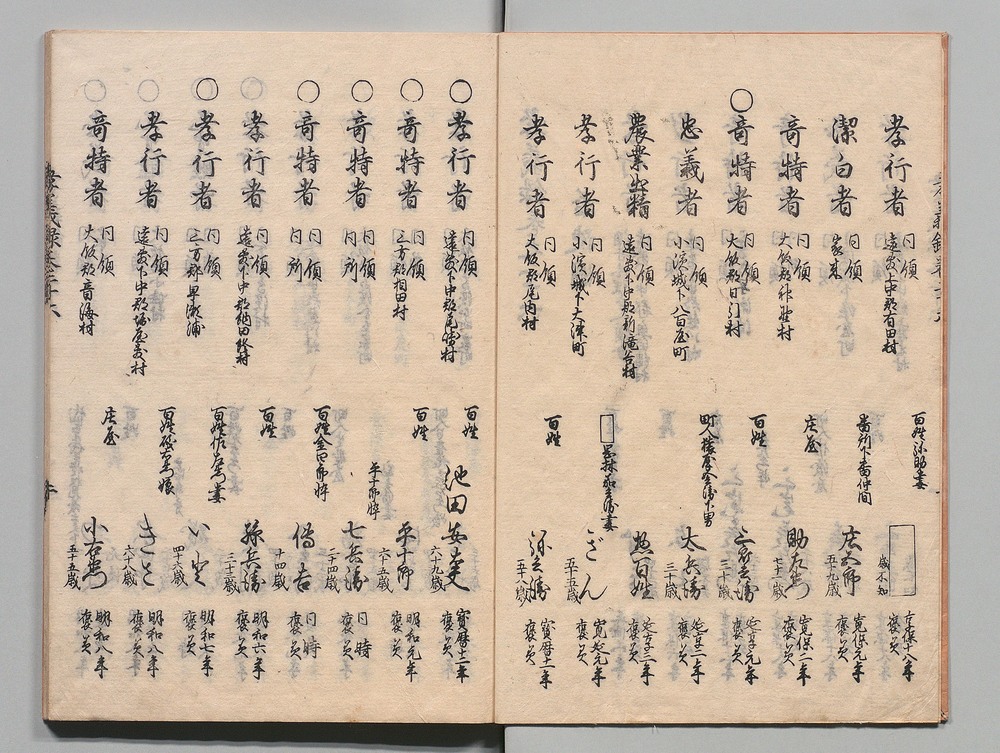 孝行者 同領 遠敷上中郡有田村 百姓弥助妻 歳不知 享保十八年 褒美
潔白者 同領 家来 番所下番仲間 庄五郎 五十九歳 寛保元年 褒美
奇特者 同領 大飯郡 村 庄屋 助左衛門 七十一歳 寛保二年 褒美
○ 奇特者 同領 大飯郡日引村 百姓 三郎兵衛 三十歳 延享元年 褒美
忠義者 同領 小濱城下八百屋町 町人 下男 太兵衛 三十歳 延享二年 褒美
農業出精 同領 遠敷下中郡新滝谷村 惣百姓 延享三年 褒美
孝行者 同領 小濱城下大津町 妻 ぎん 五十五歳 寛延元年 褒美
孝行者 同領 大飯郡尾内村 百姓 弥兵衛 五十八歳 寳暦十一年 褒美
○ 孝行者 同領 遠敷下中郡尾崎村 百姓 池田安大夫 六十九歳 寳暦十二年 褒美
○ 奇特者 同領 三方郡相田村 百姓 平十郎 六十五歳 明和元年 褒美
○ 奇特者 同領 同所 平十郎忰 七兵衛 二十四歳 同時 褒美
○ 奇特者 同領 同所 百姓金四郎忰 傳吉 十四歳 同時 褒美
○ 孝行者 同領 遠敷下中郡納田終村 百姓 孫兵衛 三十二歳 明和六年 褒美
○ 孝行者 同領 三方郡早瀬浦 百姓佐左衛門妻 四十六歳 明和七年 褒美
○ 孝行者 同領 遠敷下中郡 村 百姓 娘 きさ 六十八歳 明和八年 褒美
○ 奇特者 同領 大飯郡音海村 庄屋 小右衛門 五十五歳 明和八年 褒美